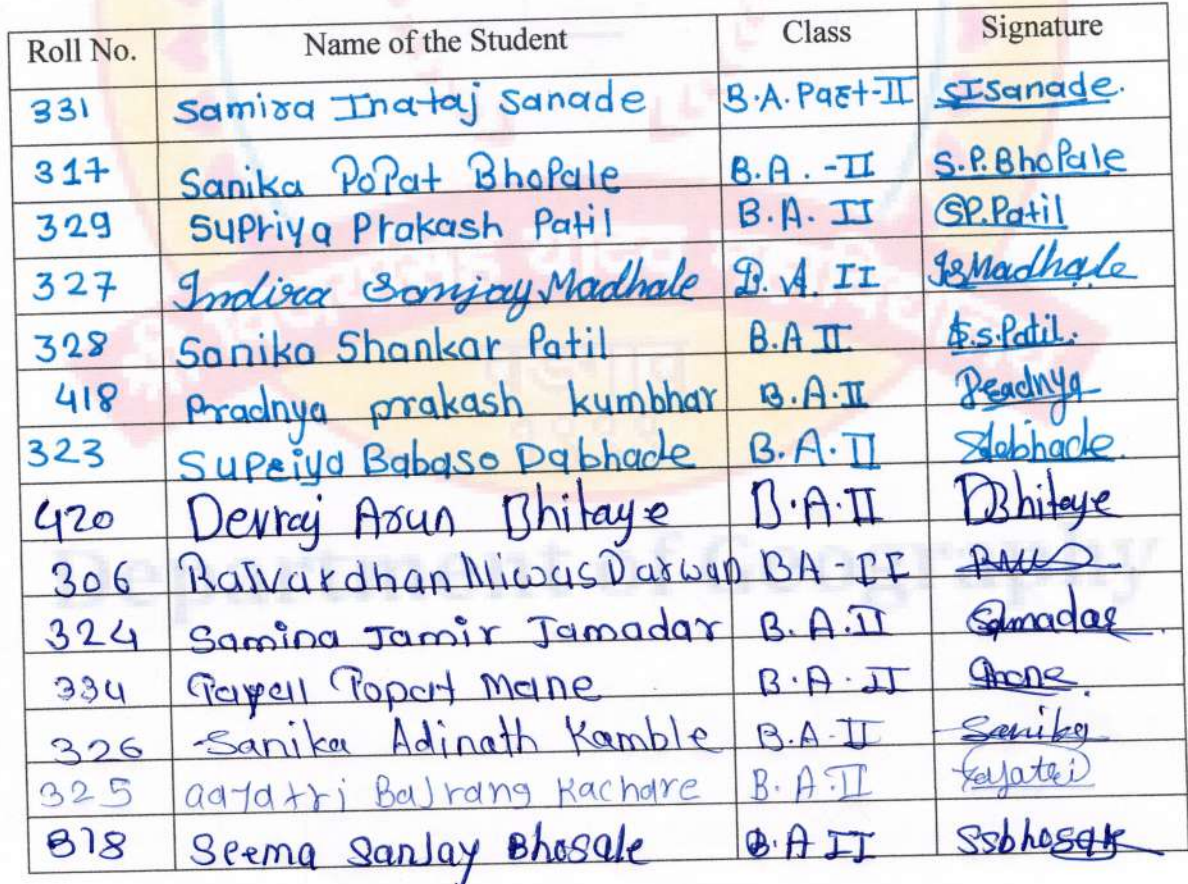 Roll No. Name of the Student Class Signature
331 Samira Inataj Sanade B.A. Part-II SISanade.
317 Sanika PoPat BhoPale B.A. -II S.P.BhoPale
329 SuPriya Prakash Patil B.A. II SP.Patil
327 Indira Sanjay Madhale B.A. II ISMadhale
328 Sanika Shankar Patil B.A II S.s.Patil.
418 Pradnya prakash kumbhar B.A.II Pradnya
323 Supriya Babaso Dabhade B.A.II Sdabhade.
420 Devraj Arun Bhitaye B.A.II DBhitaye
306 Rajvardhan Niwas Darwan BA-II
324 Samina Jamir Jamadar B.A.II Sjamadar
334 Payall Popat Mane B.A.II Pmane
326 Sanika Adinath Kamble B.A-II Sanika
325 Gayatri Bajrang Kachare B.A.II Gayatri
318 Seema Sanjay Bhosale B.A II Ssbhosale
Department of Geography